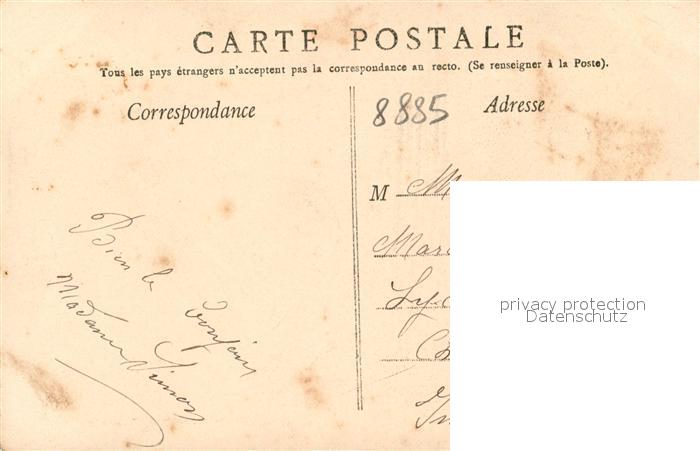 CARTE POSTALE
Tous les pays étrangers n'acceptent pas la correspondance au recto. (Se renseigner à la Poste).
Correspondance
8885
Adresse
M
Bien le
bonjour
Madame Simon
privacy protection
Datenschutz